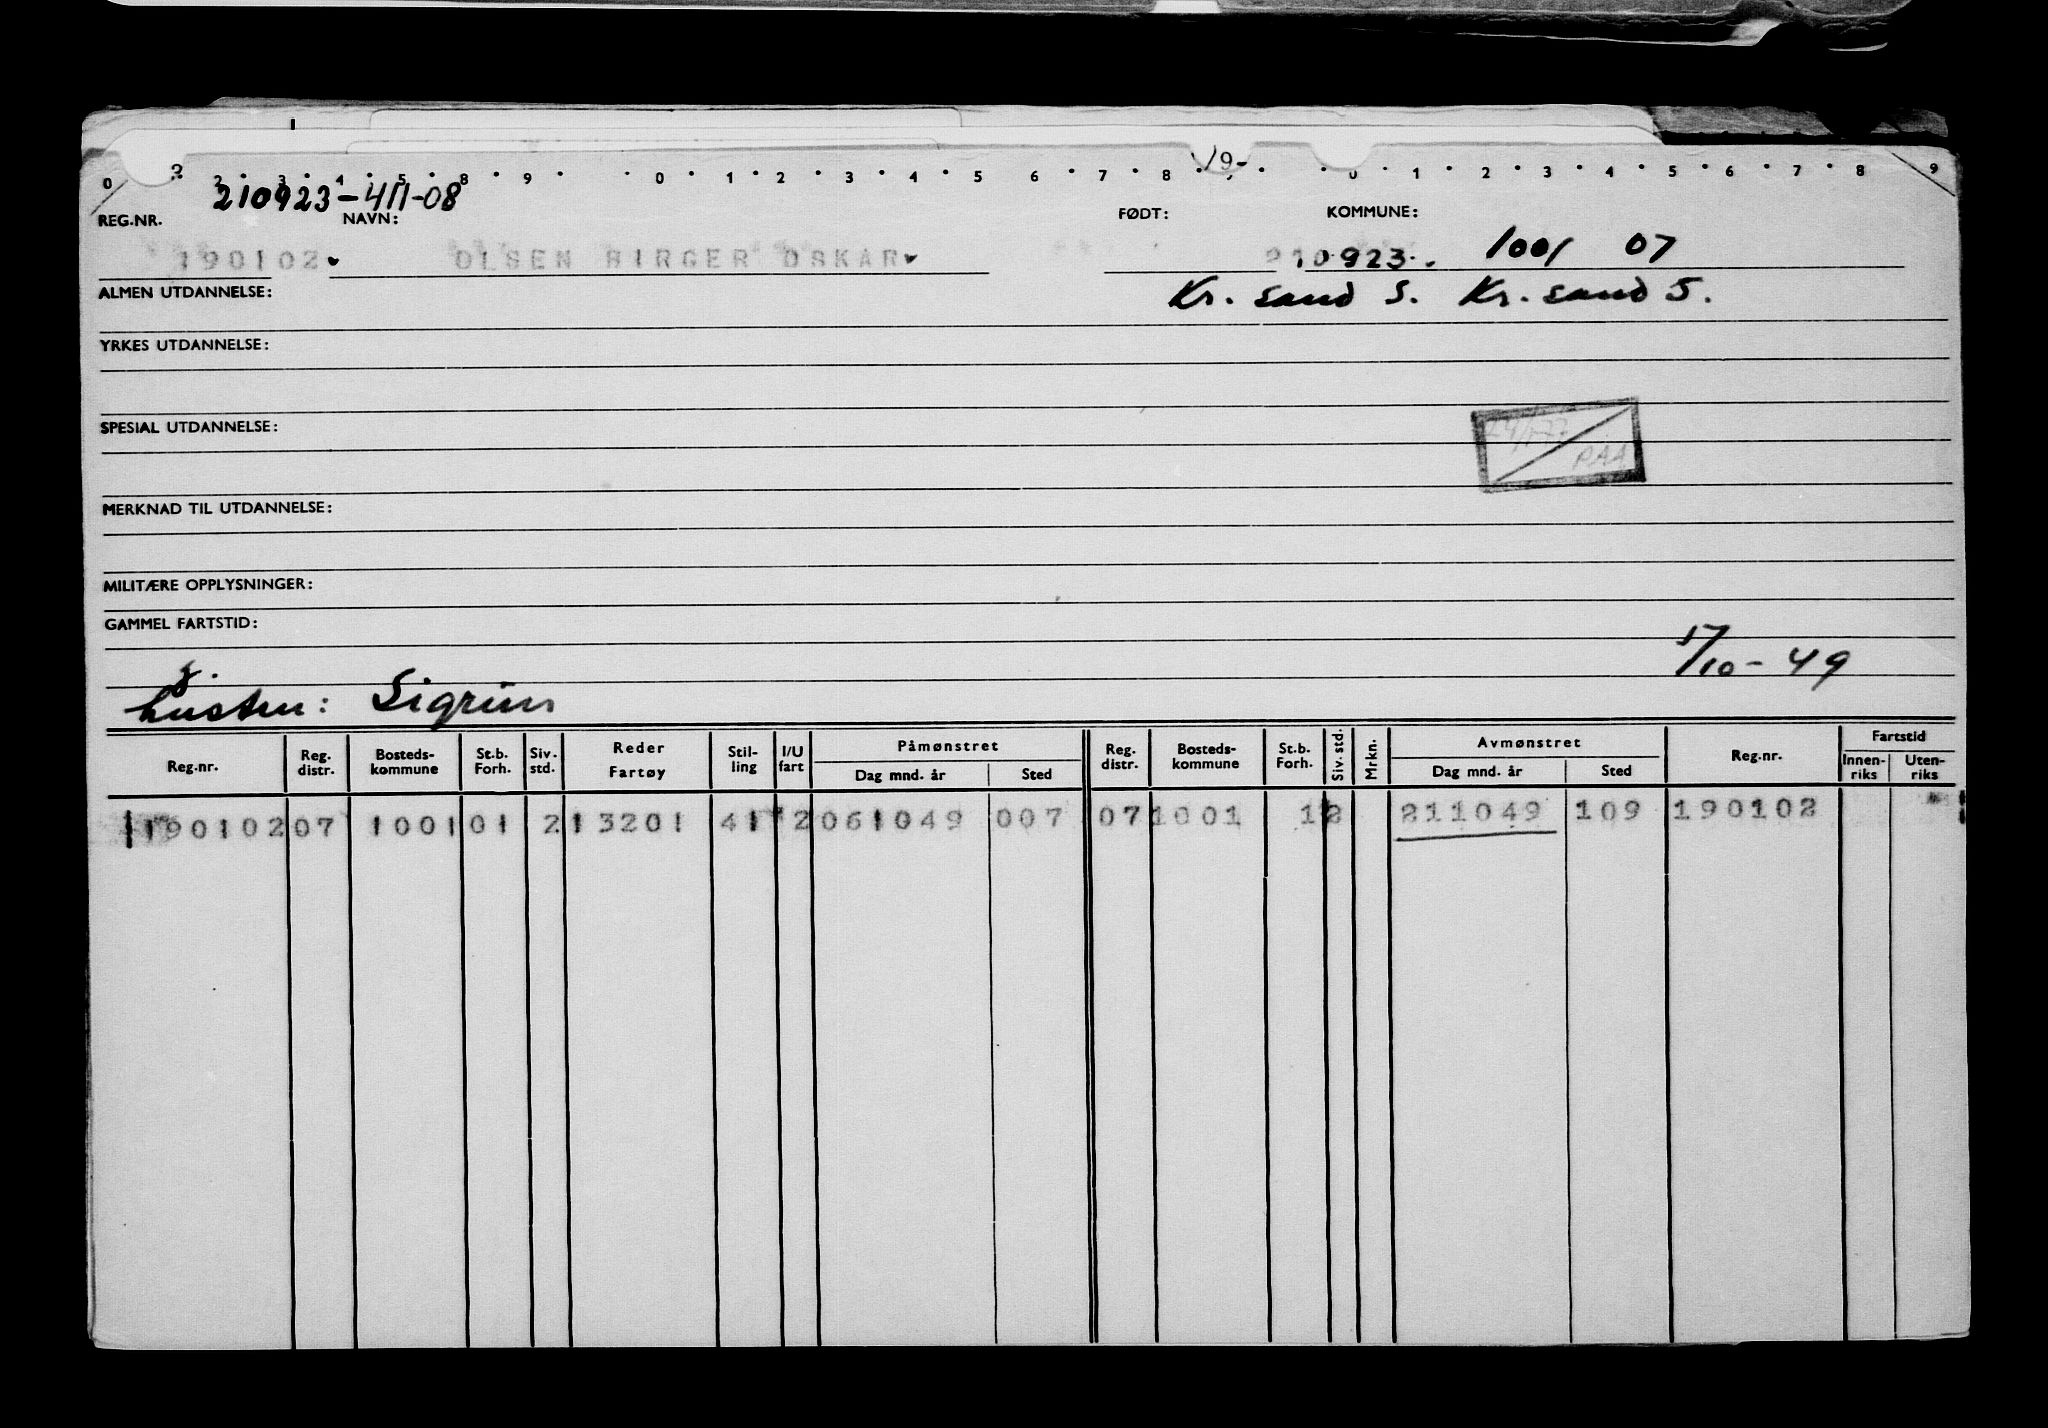 /9-
0 2 3 4 5 8 9 0 1 2 3 4 5 6 7 8 0 1 2 3 4 5 6 7 8 9
210923-411-08
REG.NR. NAVN: FØDT: KOMMUNE:
190102 OLSEN BIRGER OSKAR 210923. 1001 07
ALMEN UTDANNELSE: Kr. sand S. Kr. sand S.
YRKES UTDANNELSE:
SPESIAL UTDANNELSE:
PAA
MERKNAD TIL UTDANNELSE:
MILITÆRE OPPLYSNINGER:
GAMMEL FARTSTID:
17/10-49
hustru: Sigrun
Reg.nr. Reg. distr. Bosteds-kommune St.b. Forh. Siv. std. Reder Fartøy Stil-ling I/U fart Påmønstret Dag mnd. år Sted Reg. distr. Bosteds-kommune St.b. Forh. Siv. std. Mrkn. Avmønstret Dag mnd. år Sted Reg.nr. Fartstid Innen-riks Uten-riks
190102 07 1001 01 2 13201 41 2 061049 007 07 1001 1 2 211049 109 190102